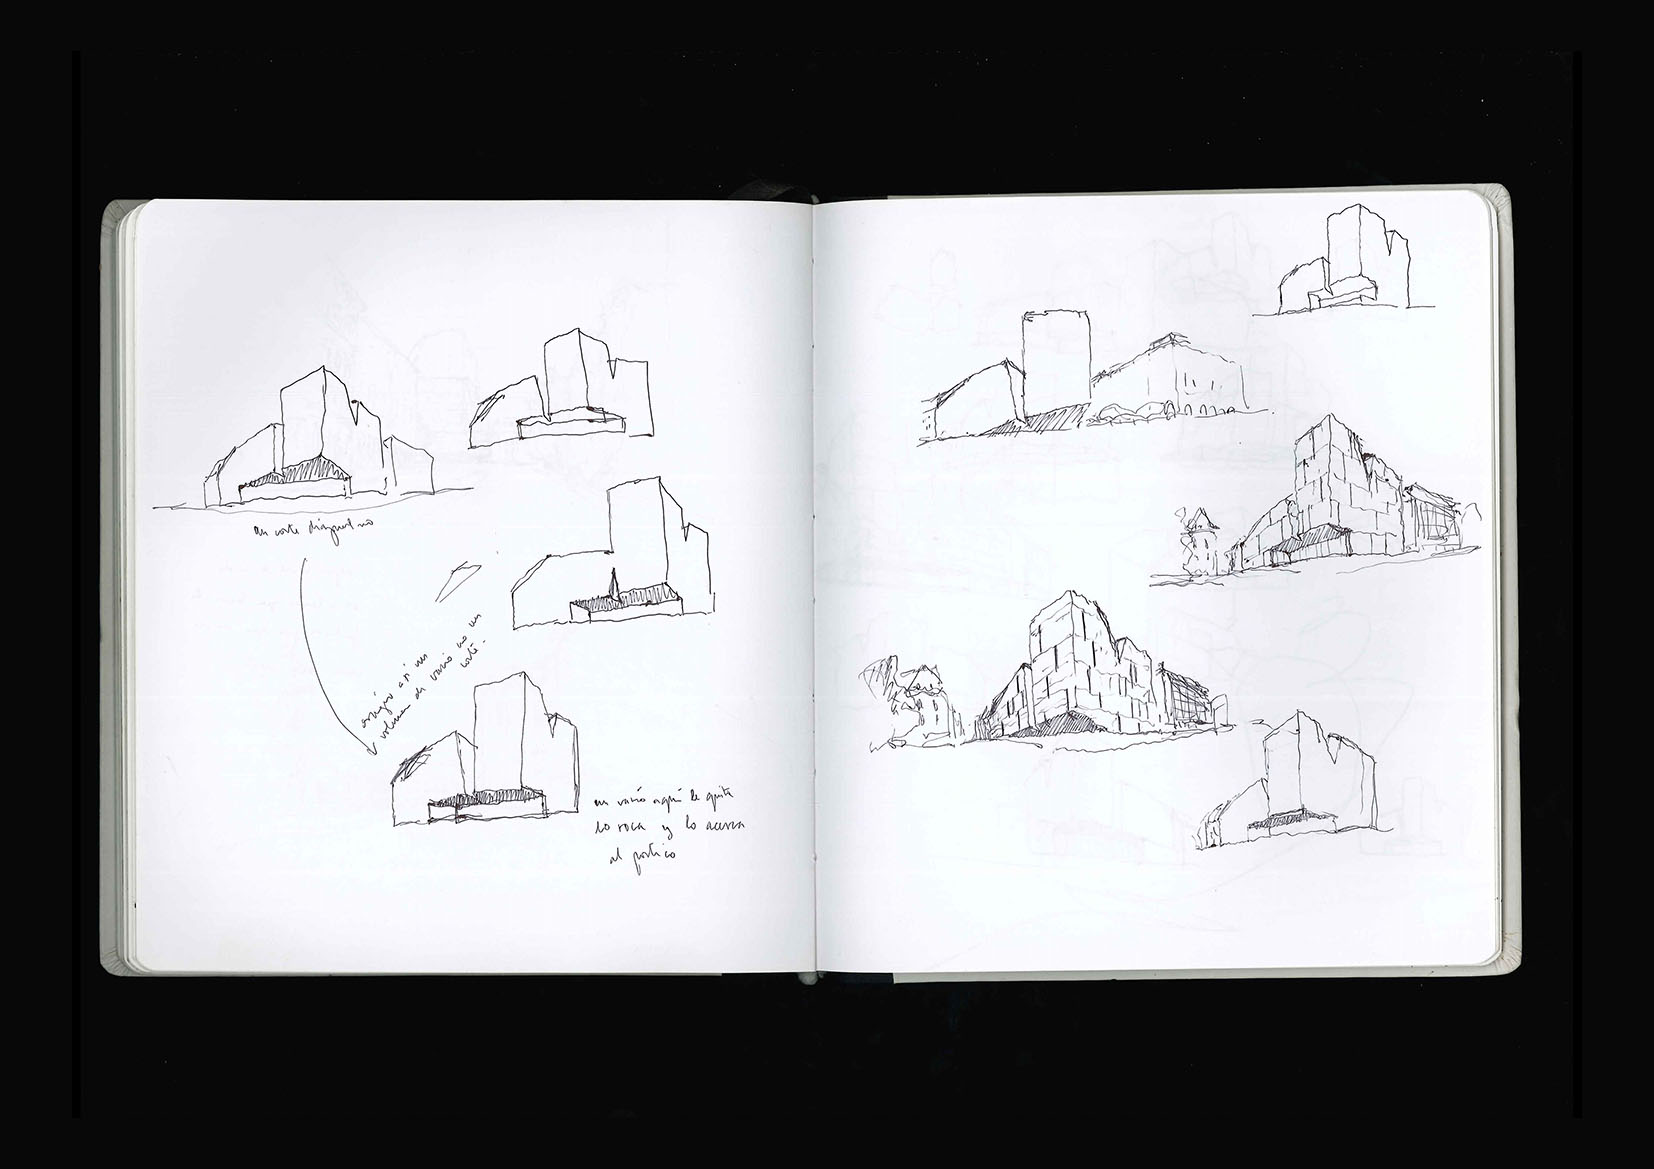 un corte diagonal no
así un
volumen de vacío no un
corte.
un vacío aquí le quita
lo roca y lo acerca
al pórtico